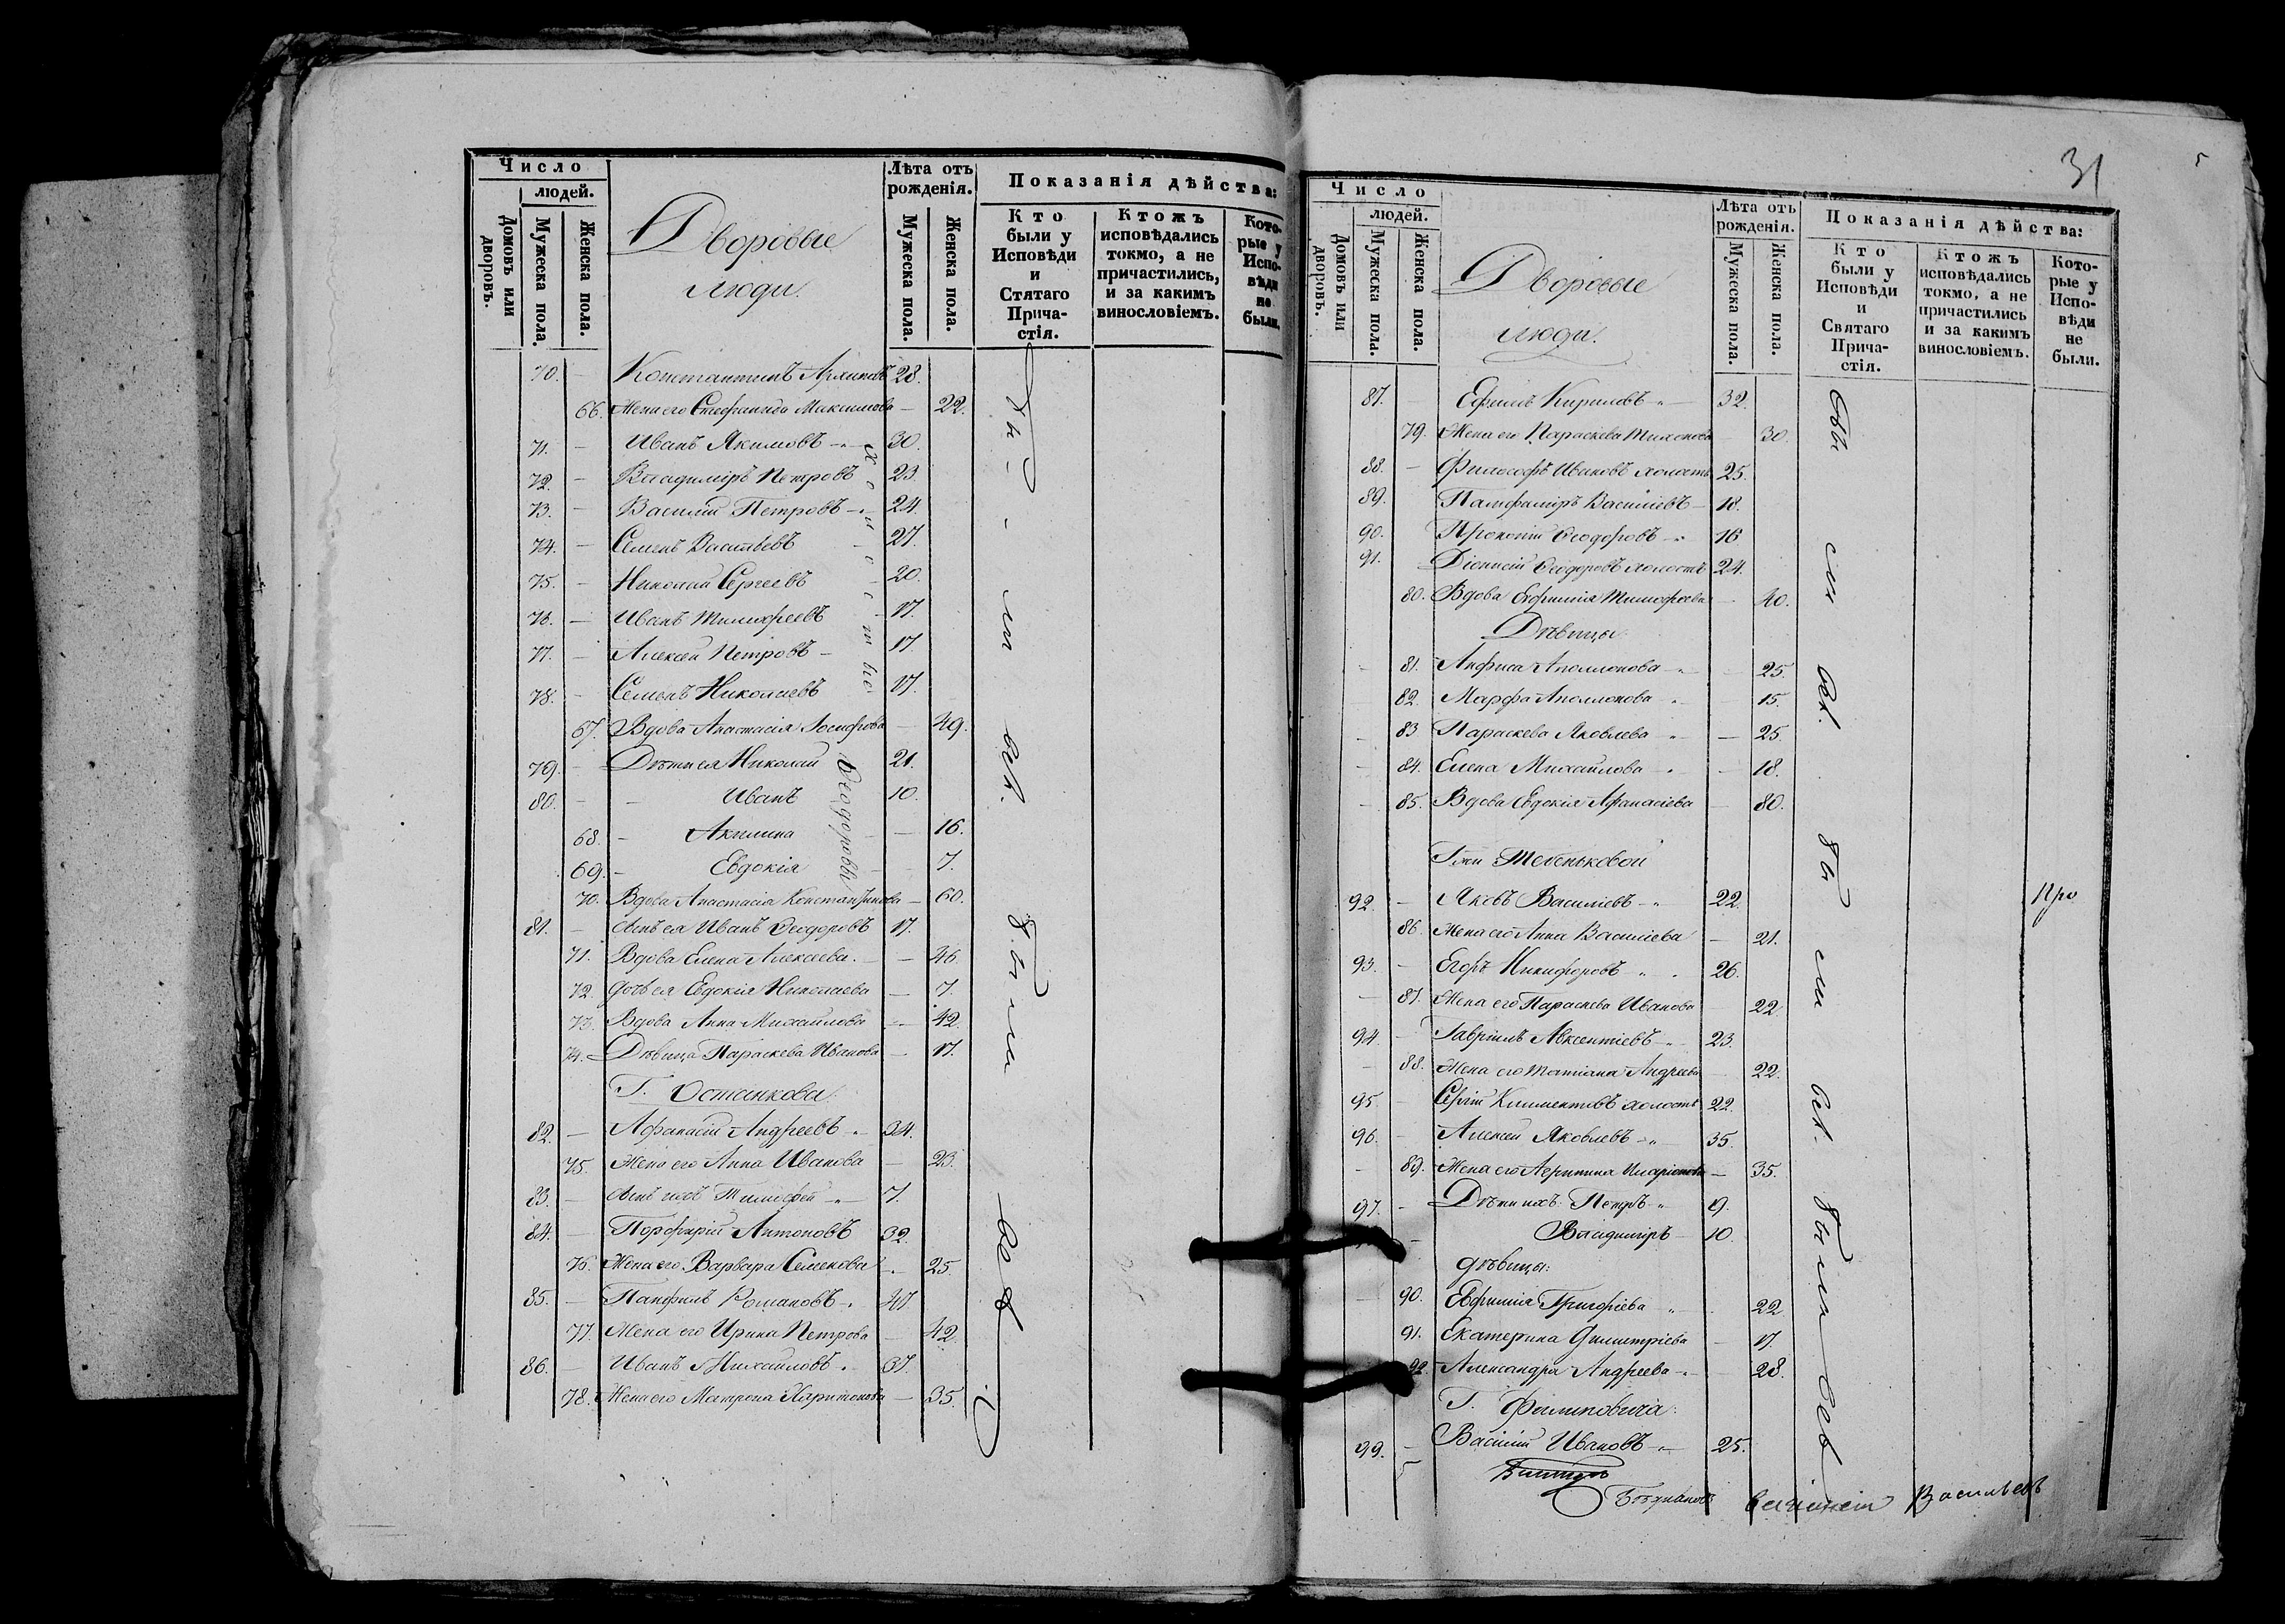 Число
людей.
Домовъ или дворовъ.
Мужеска пола.
Женска пола.
Дворовые
люди.
Лѣта отъ рожденія.
Мужеска пола.
Женска пола.
Показанія дѣйства:
Кто были у Исповѣди и Стятаго Прича-стія.
Ктожъ исповѣдались токмо, а не причастились, и за какимъ винословіемъ.
Кото-рые у Испо-вѣди не были.
70. — Константинъ Архиповъ 28.
66. Жена его Стефанида Максимова — 22.
71. — Иванъ Якимовъ — 30.
72. — Владимiръ Петровъ 23.
73. — Василiй Петровъ — 24.
74. — Семенъ Васильевъ — 27.
75. — Николай Сергеевъ — 20.
76. — Иванъ Тимофеевъ — 17.
77. — Алексей Петровъ — 17.
78. — Семенъ Николаевъ 17.
холосты
67. Вдова Анастасiя Iосифова — 49.
79. — Дѣти ея Николай 21.
80. — — Иванъ 10.
68. — Акилина — 16.
69. — Евдокiя — 7.
Ѳеодоровы
70. Вдова Анастасiя Константинова — 60.
81. — Сынъ ея Иванъ Ѳеодоровъ 17.
71. Вдова Елена Алексеева. — 46.
72 Дочь ея Евдокiя Николаева — 7.
73. Вдова Анна Михайлова — 42.
74. — Дѣвица Параскева Иванова — 17.
Г. Останкова:
82. — Афанасiй Андреевъ — 34.
75. Жена его Анна Иванова — 23.
83. — Сынъ ихъ Тимофей — 7.
84. — Порфирiй Антоновъ 32.
76. Жена его Варвара Семенова — 25.
85. — Панфилъ Романовъ — 47
77. Жена его Ирина Петрова — 42.
86. — Иванъ Михайловъ 37.
78. Жена его Матрона Харитонова — 35.
31
Число
людей.
Домовъ или дворовъ.
Мужеска пола.
Женска пола.
Дворовые
люди.
Лѣта отъ рожденія.
Мужеска пола.
Женска пола.
Показанія дѣйства:
Кто были у Исповѣди и Святаго Прича-стія.
Ктожъ исповѣдались токмо, а не причастились и за какимъ винословіемъ.
Кото-рые у Испо-вѣди не были.
87. — Ефимъ Кириловъ — 32.
79. Жена его Параскева Тихонова — 30.
88. — Философъ Ивановъ холостъ 25.
89. Памфамiръ Василiевъ — 18.
90. Прокопiй Ѳеодоровъ — 16
91. Дiонисiй Ѳеодоровъ холостъ 24.
80. Вдова Евфимiя Тимофеева — 40.
Дѣвицы:
81. Анфиса Аполлонова — 25.
82. Марфа Аполлонова — 15.
83 Параскева Яковлева — 25.
84. Елена Михайлова — 18.
85. Вдова Евдокiя Афанасiева — 80.
Гжи Тебеньковой
92. — Яковъ Василiевъ 22.
86. Жена его Анна Василiева — 21.
93. — Егоръ Никифоровъ 26.
87. Жена его Параскева Иванова 22
94. — Гаврiилъ Авксентiевъ 23.
88. Жена его Татiана Андреева — 22.
95. Сергiй Климентовъ холостъ 22.
96. — Алексей Яковлевъ 35.
89. Жена его Агрипина Иларiонова — 35.
97. — Дѣти ихъ: Петръ 9.
— Владимiръ 10.
дѣвицы:
90. Евфимiя Григорiева — 22
91. Екатерина Димитрiева — 17.
92. Александра Андреева — 28.
Г. Филиповича:
99. — Василiй Ивановъ — 25.
Про
Василевъ